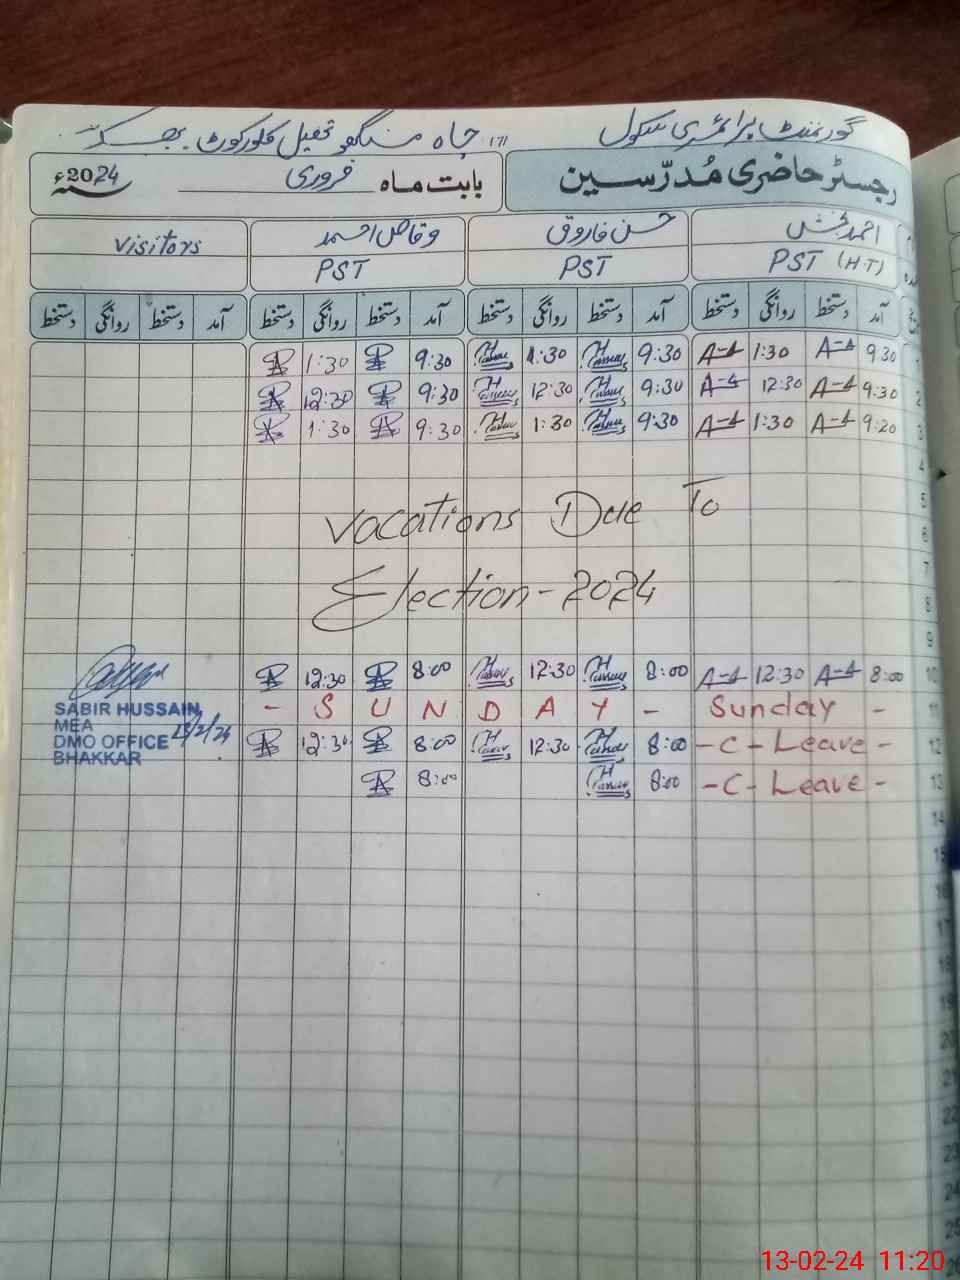 گورنمنٹ پرائمری سکول چاہ تحصیل کلورکوٹ بھکر
رجسٹر حاضری مُدرّسین بابت ماہ فروری 2024ء
احمد بخش حسن فاروق وقاص احمد Visitors
PST (H.T) PST PST
آمد دستخط روانگی دستخط آمد دستخط روانگی دستخط آمد دستخط روانگی دستخط آمد دستخط روانگی دستخط
1 9:30 1:30 9:30 1:30 9:30 1:30
2 9:30 12:30 9:30 12:30 9:30 12:30
3 9:20 1:30 9:30 1:30 9:30 1:30
4
5
Vacations Due To
6
7
Election-2024
8
9
10 8:00 12:30 8:00 12:30 8:00 12:30
11 - Sunday - S U N D A Y -
12 - C - Leave - 8:00 12:30 8:00 12:30
13 - C - Leave - 8:00 8:00
SABIR HUSSAIN
MEA
DMO OFFICE
BHAKKAR
14
15
16
17
18
19
20
21
22
23
24
25
13-02-24 11:20